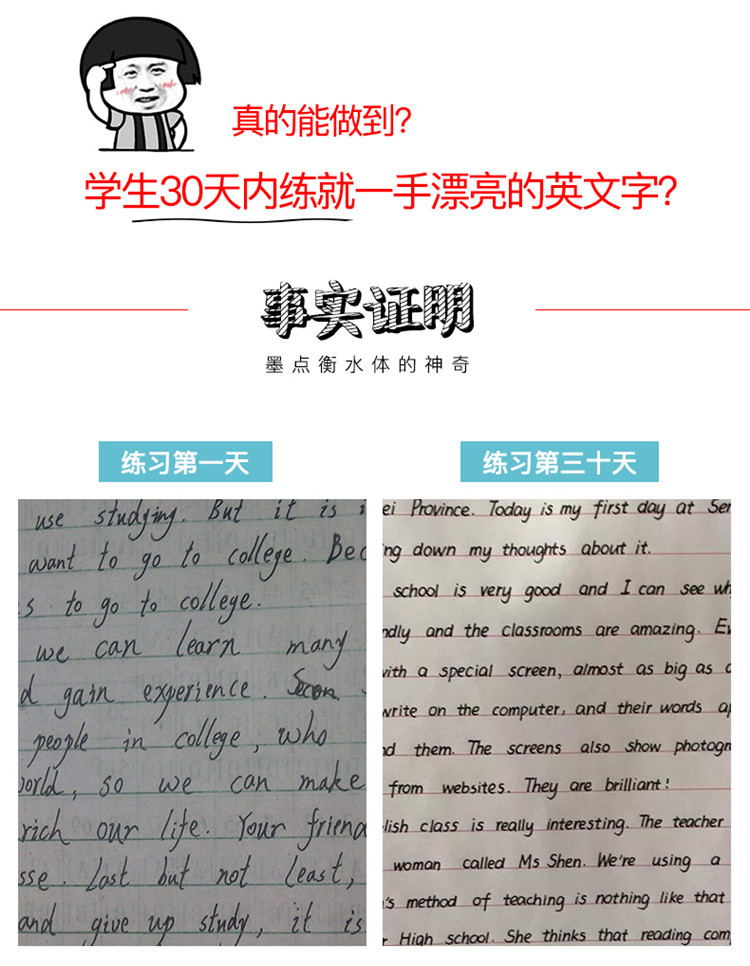 真的能做到?
学生30天内练就一手漂亮的英文字?
事实证明
墨点衡水体的神奇
练习第一天
use studying. But it is
want to go to college. Bec
s to go to college.
we can learn many
d gain experience.
people in college, who
world, so we can make
rich our life. Your friend
sse. Last but not least,
and give up study, it is
练习第三十天
ei Province. Today is my first day at Ser
ng down my thoughts about it.
school is very good and I can see wh
ndly and the classrooms are amazing. Ev
with a special screen, almost as big as a
write on the computer, and their words ap
nd them. The screens also show photogr
from websites. They are brilliant!
lish class is really interesting. The teacher
woman called Ms Shen. We're using a
's method of teaching is nothing like that
r High school. She thinks that reading com